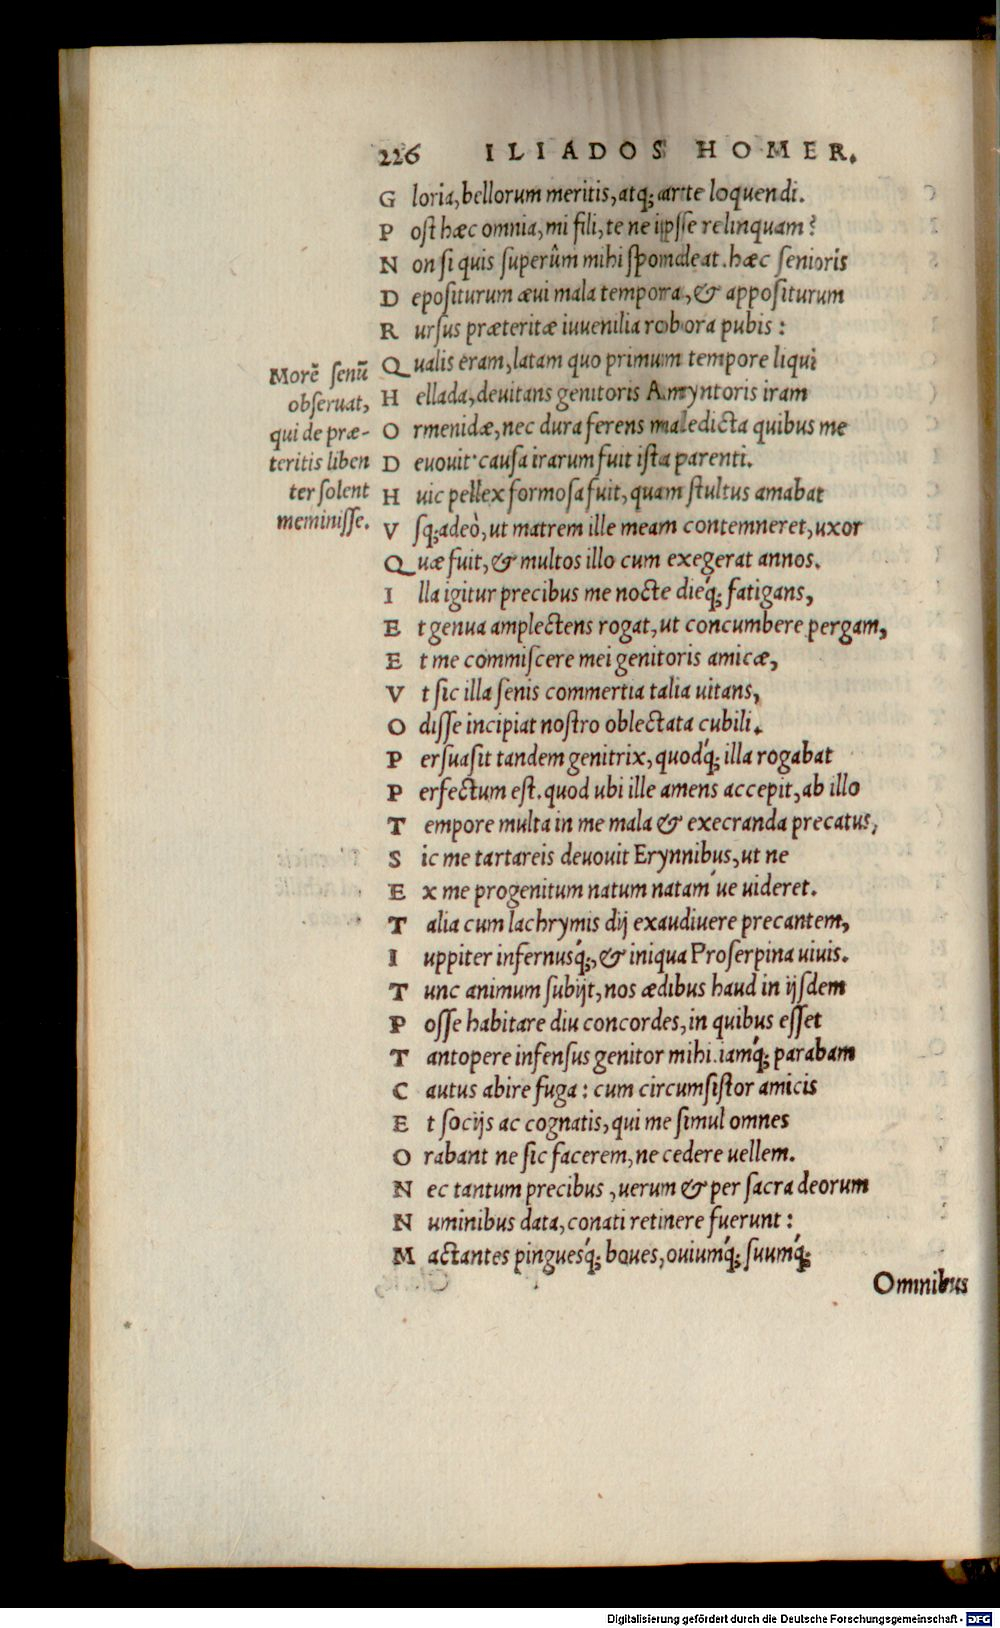 226 ILIADOS HOMER.
Gloria, bellorum meritis, atq́; arte loquendi.
Post hæc omnia, mi fili, te ne ipse relinquam?
Non si quis superûm mihi spondeat. hæc senioris
Depositurum æui mala tempora, & appositurum
Rursus præteritæ iuuenilia robora pubis:
Qualis eram, latam quo primum tempore liqui
Hellada, deuitans genitoris Amyntoris iram
Ormenidæ, nec dura ferens maledicta quibus me
Deuouit. causa irarum fuit ista parenti.
Huic pellex formosa fuit, quam stultus amabat
Vsq; adeò, ut matrem ille meam contemneret, uxor
Quæ fuit, & multos illo cum exegerat annos.
Illa igitur precibus me nocte dieq́; fatigans,
Et genua amplectens rogat, ut concumbere pergam,
Et me commiscere mei genitoris amicæ,
Vt sic illa senis commertia talia uitans,
Odisse incipiat nostro oblectata cubili.
Persuasit tandem genitrix, quodq́; illa rogabat
Perfectum est. quod ubi ille amens accepit, ab illo
Tempore multa in me mala & execranda precatus,
Sic me tartareis deuouit Erynnibus, ut ne
Ex me progenitum natum natam ́ue uideret.
Talia cum lachrymis dij exaudiuere precantem,
Iuppiter infernusq́;, & iniqua Proserpina uiuis.
Tunc animum subijt, nos ædibus haud in ijsdem
Posse habitare diu concordes, in quibus esset
Tantopere infensus genitor mihi. iamq́; parabam
Cautus abire fuga: cum circumsistor amicis
Et socijs ac cognatis, qui me simul omnes
Orabant ne sic facerem, ne cedere uellem.
Nec tantum precibus, uerum & per sacra deorum
Numinibus data, conati retinere fuerunt:
Mactantes pinguesq́; boues, ouiumq́; suumq́;
Omnibus
Morẽ senũ
obseruat,
qui de præ-
teritis liben
ter solent
meminisse.
Digitalisierung gefördert durch die Deutsche Forschungsgemeinschaft - DFG